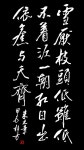 雪壓枝頭低雖低
不着泥一朝紅日出
依舊與天齊